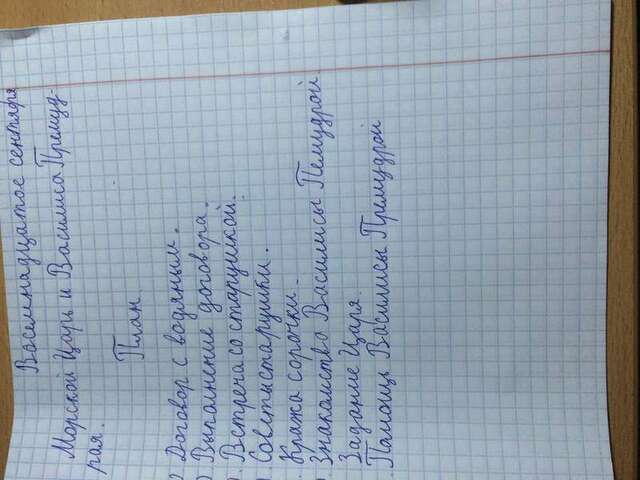 Восемнадцатое сентября
Морской Царь и Василиса Премуд-
рая.
План
Договор с водяным.
Выполнение договора.
Встреча со старушкой.
Советы старушки.
Кража сорочки.
Знакомство Василисы Пемудрой
Задание Царя.
Помощь Василисы Премудрой